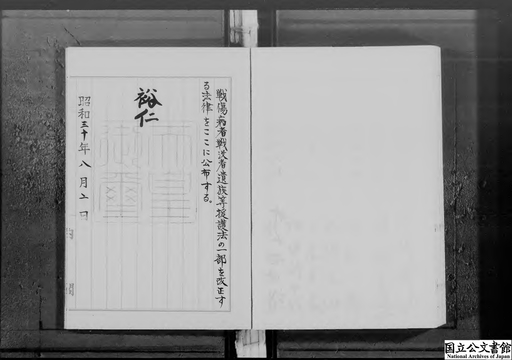 戦傷病者戦没者遺族等援護法の一部を改正す
る法律をここに公布する。
裕仁
天皇
御璽
昭和三十年八月五日
国立公文書館
National Archives of Japan